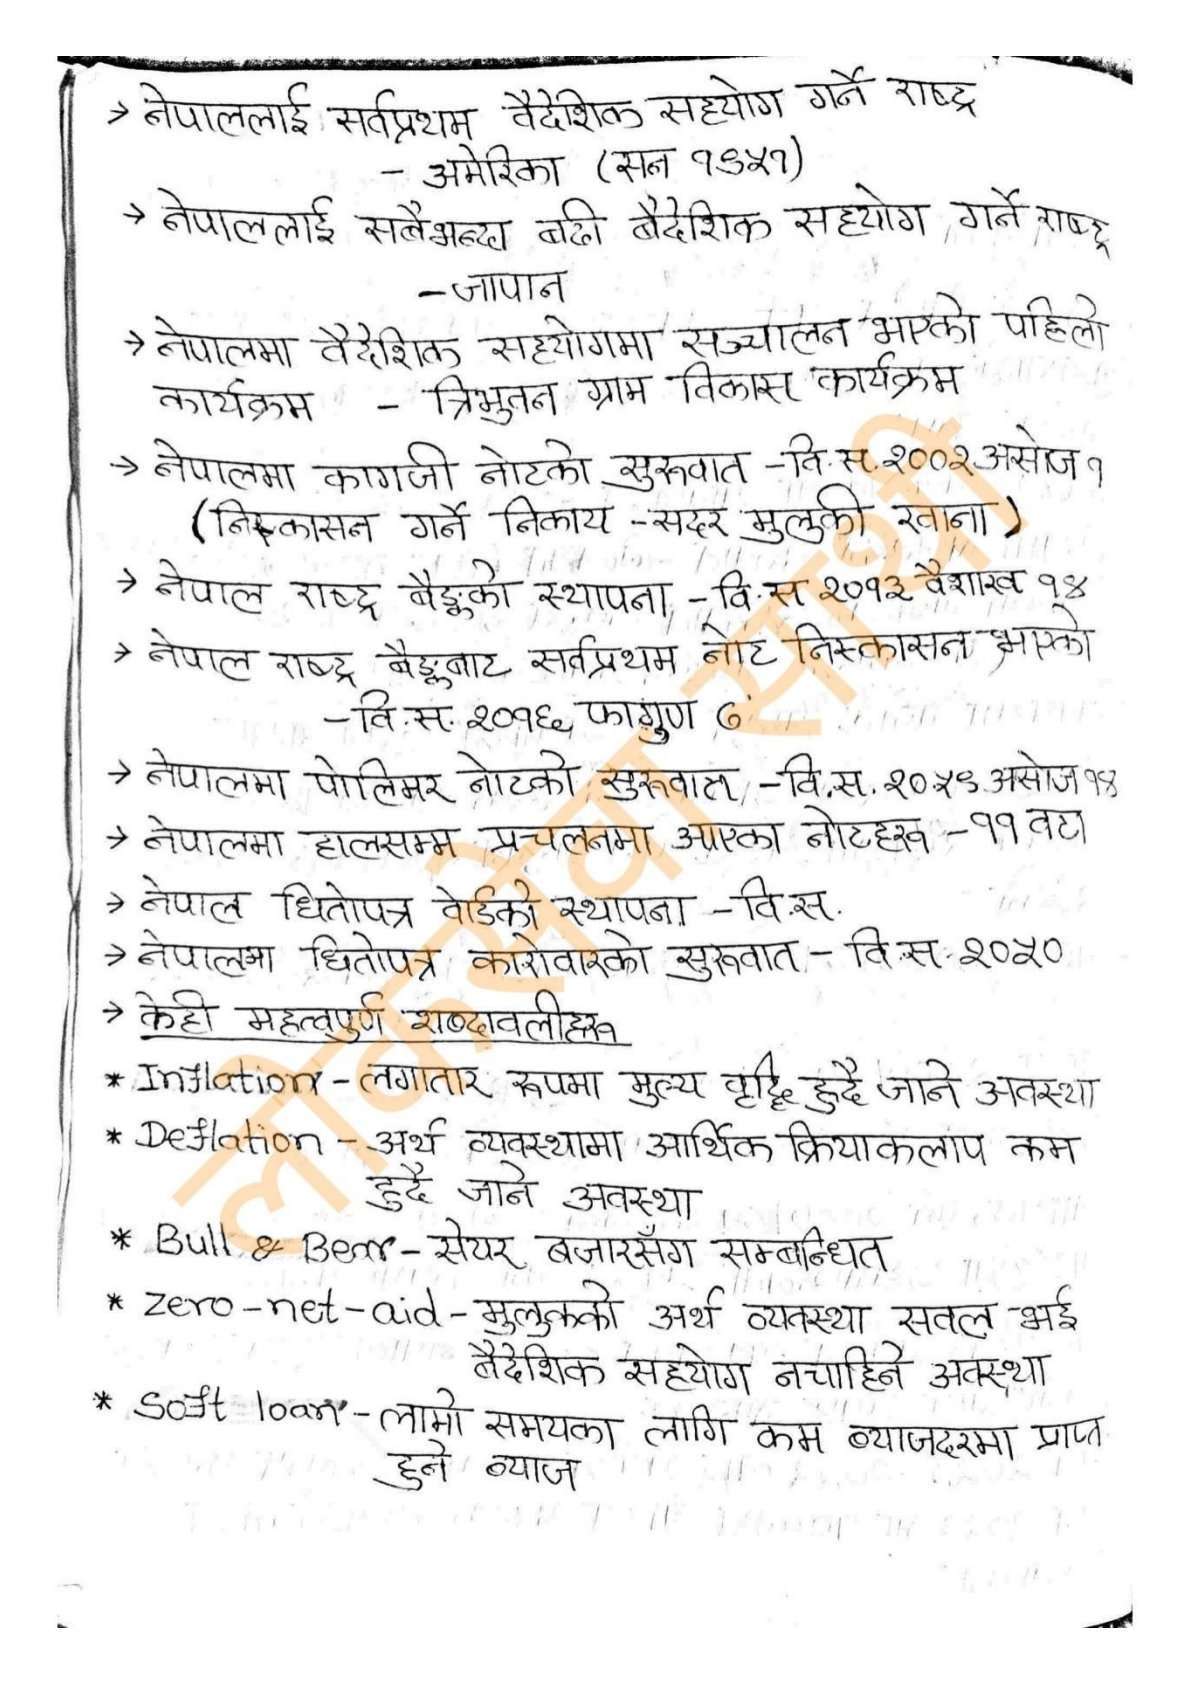 → नेपाललाई सर्वप्रथम वैदेशिक सहयोग गर्ने राष्ट्र
- अमेरिका (सन १९५१)
→ नेपाललाई सबैभन्दा बढी बैदेशिक सहयोग गर्ने राष्ट्र
- जापान
→ नेपालमा वैदेशिक सहयोगमा सञ्चालन भएको पहिलो
कार्यक्रम - त्रिभुवन ग्राम विकास कार्यक्रम
→ नेपालमा कागजी नोटको सुरूवात - वि.स. २००२ असोज १
(निस्कासन गर्ने निकाय - सदर मुलुकी खाना)
→ नेपाल राष्ट्र बैङ्कको स्थापना - वि.स २०१३ वैशाख १४
→ नेपाल राष्ट्र बैङ्कबाट सर्वप्रथम नोट निस्कासन भएको
- वि.स. २०१६ फागुण ७
→ नेपालमा पोलिमर नोटको सुरूवात - वि.स. २०५९ असोज १४
→ नेपालमा हालसम्म प्रचलनमा आएका नोटहरू - ११ वटा
→ नेपाल धितोपत्र वोर्डको स्थापना - वि.स.
→ नेपालमा धितोपत्र कारोवारको सुरूवात - वि.स. २०५०
→ केही महत्वपुर्ण शब्दावलीहरू
* Inflation - लगातार रूपमा मुल्य वृद्धि हुदै जाने अवस्था
* Deflation - अर्थ व्यवस्थामा आर्थिक क्रियाकलाप कम
हुदै जाने अवस्था
* Bull & Bear - सेयर बजारसँग सम्बन्धित
* Zero-net-aid - मुलुकको अर्थ व्यवस्था सवल भई
बैदेशिक सहयोग नचाहिने अवस्था
* Soft loan - लामो समयका लागि कम ब्याजदरमा प्राप्त
हुने ब्याज
लोकसेवा साथी